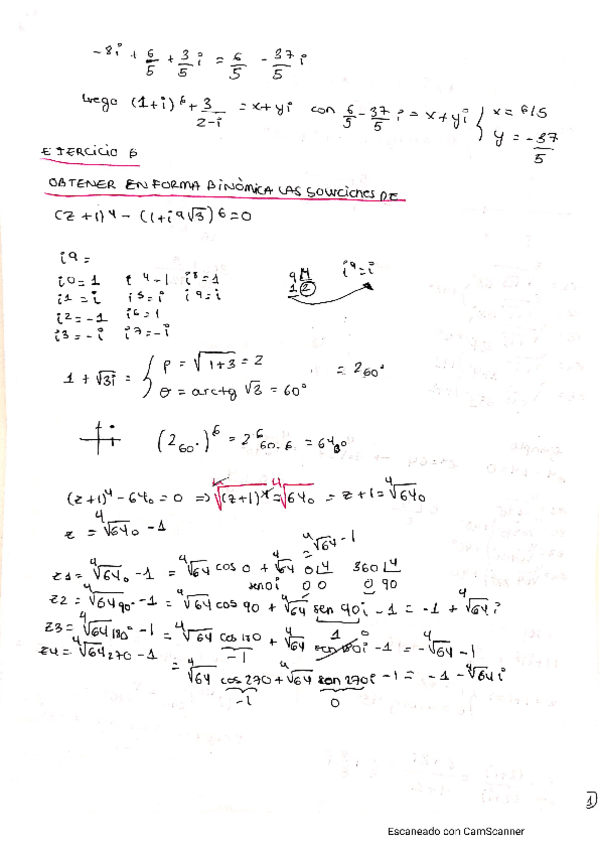 -8i + 6/5 + 3/5 i = 6/5 - 37/5 i
luego (1+i)⁶ + 3/(2-i) = x+yi con 6/5 - 37/5 i = x+yi { x = 6/5
y = -37/5
EJERCICIO 6
OBTENER EN FORMA BINÓMICA LAS SOLUCIONES DE
(z+1)⁴ - (1+i⁹√3)⁶ = 0
i⁹ =
i⁰ = 1 i⁴ - 1 i⁸ = 1
i¹ = i i⁵ = i i⁹ = i
i² = -1 i⁶ = 1
i³ = -i i⁷ = -i
9 |4 i⁹ = i
1 2
1 + √3i = { ρ = √1+3 = 2
θ = arctg √3 = 60°
= 2₆₀°
i
(2₆₀°)⁶ = 2⁶ ₆₀.₆ = 64
(z+1)⁴ - 64₀ = 0 ⇒ ⁴√(z+1)⁴ = ⁴√64₀ = z+1 = ⁴√64₀
z = ⁴√64₀ - 1
= ⁴√64 - 1
z1 = ⁴√64₀ - 1 = ⁴√64 cos 0 + ⁴√64 sen 0i
0 |4 360 |4
0 0 0 90
z2 = ⁴√64₉₀° - 1 = ⁴√64 cos 90 + ⁴√64 sen 90i - 1 = -1 + ⁴√64 i
1
z3 = ⁴√64₁₈₀° - 1 = ⁴√64 cos 180 + ⁴√64 sen 180i - 1 = -⁴√64 - 1
-1 0
z4 = ⁴√64₂₇₀ - 1
= ⁴√64 cos 270 + ⁴√64 sen 270i - 1 = -1 - ⁴√64 i
-1 0
1
Escaneado con CamScanner